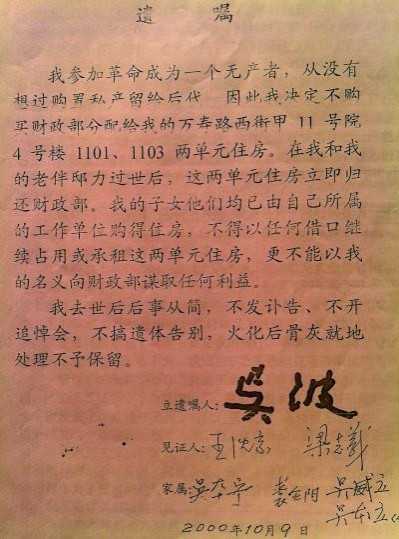 遗 嘱
我参加革命成为一个无产者，从没有
想过购置私产留给后代，因此我决定不购
买财政部分配给我的万寿路西街甲 11 号院
4 号楼 1101、1103 两单元住房。在我和我
的老伴邸力过世后，这两单元住房立即归
还财政部。我的子女他们均已由自己所属
的工作单位购得住房，不得以任何借口继
续占用或承租这两单元住房，更不能以我
的名义向财政部谋取任何利益。
我去世后后事从简，不发讣告、不开
追悼会，不搞遗体告别，火化后骨灰就地
处理不予保留。
立遗嘱人：吴波
见证人：王 梁
家属：吴 吴威立
吴本立
2000年10月9日